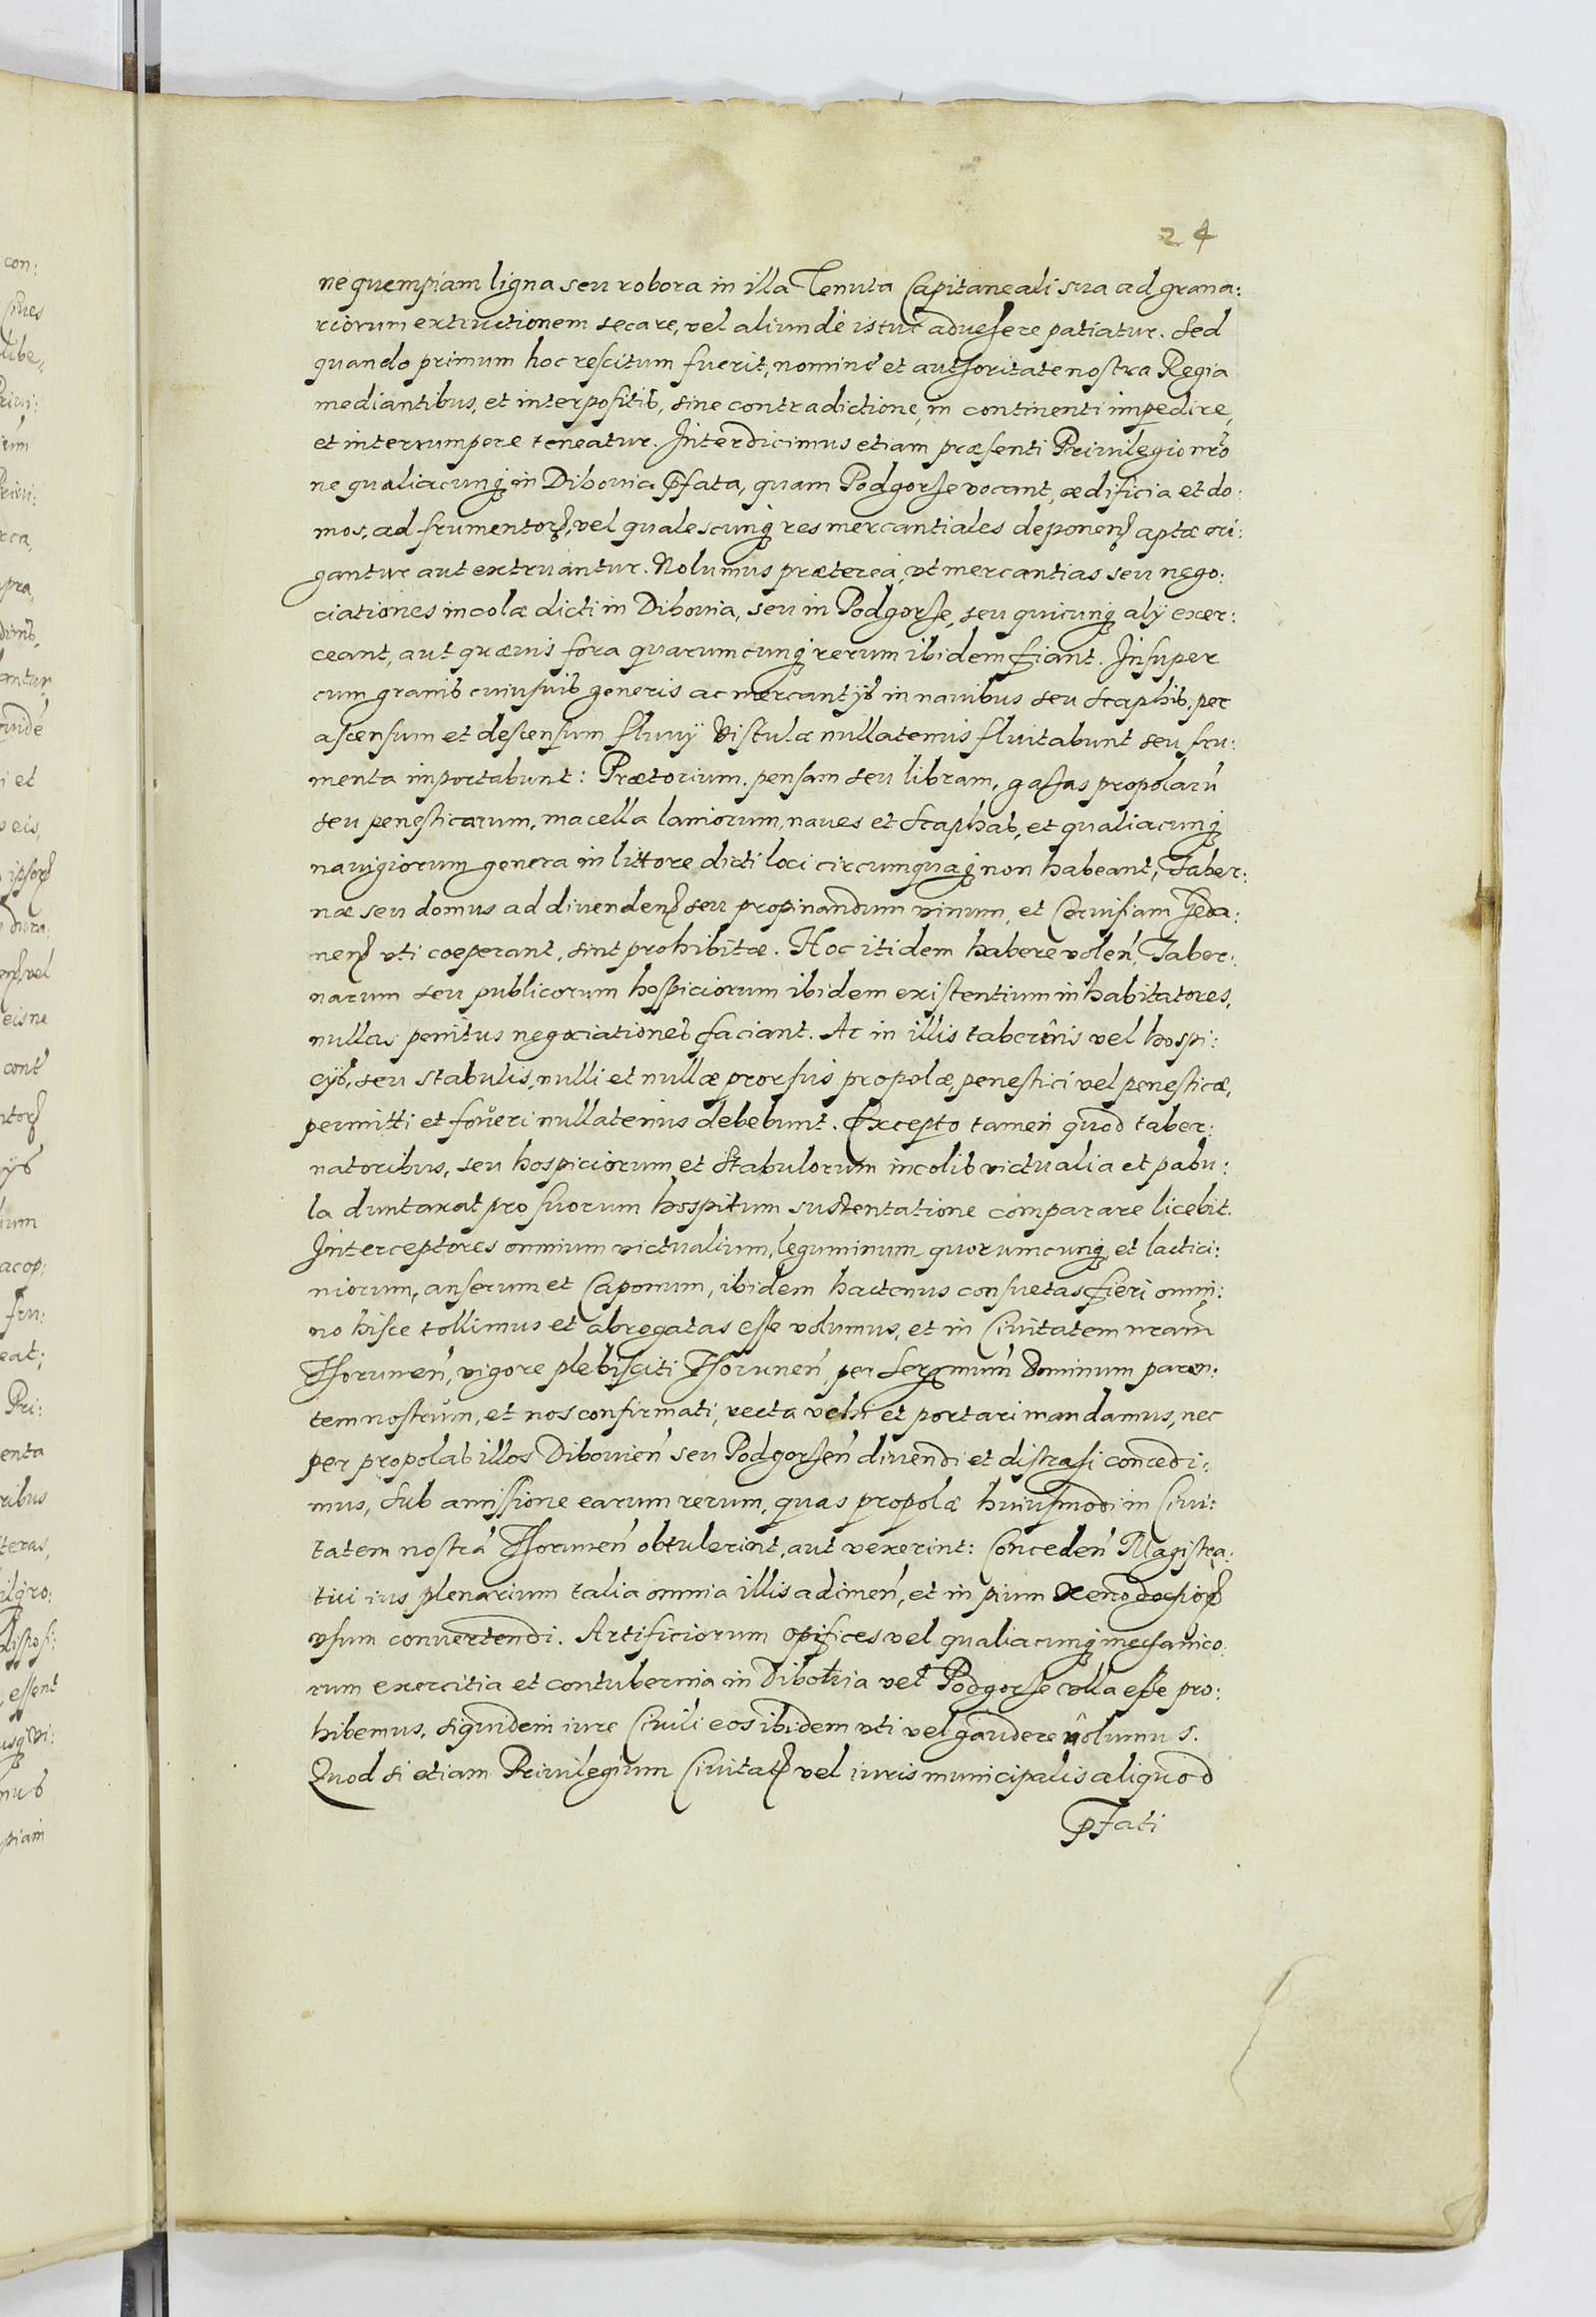 24
ne quempiam ligna seu robora in illa Tenuta Capitaneali sua ad grana:
riorum extructionem secare, vel aliunde istuc aduehere patiatur. Sed
quando primum hoc rescitum fuerit, nomine et authoritate nostra Regia
mediantibus, et interpositis, sine contradictione, in continenti impedire,
et interrumpere teneatur. Interdicimus etiam præsenti Priuilegio nr̃o
ne qualiacunq in Dibouia p̱fata, quam Podgorże vocant, ædificia et do:
mos, ad frumentorꝝ, vel qualescunq res mercantiales deponenꝝ aptæ eri:
gantur aut extruantur. Nolumus præterea, vt mercantias seu nego:
ciationes incolæ dicti in Dibouia, seu in Podgorże, seu quicunq alÿ exer:
ceant, aut quæuis fora quarumcunq rerum ibidem fiant. Insuper
cum granis cuiusuis generis ac mercantÿs in nauibus seu scaphis, per
ascensum et descensum fluuÿ Vistulæ nullatenus fluitabunt seu fru:
menta importabunt: Prætorium, pensam seu libram, gazas propolarū
seu penesticarum, macella laniorum, naues et scaphas, et qualiacunq
nauigiorum genera in littore dicti loci circumquaq non habeant, Taber:
næ seu domus ad diuendenꝝ seu propinandum vinum, et Ceruisiam Geda:
nenꝝ vti coeperant, sint prohibitæ. Hoc itidem habere volen̄, Taber:
narum seu publicorum hospiciorum ibidem existentium inhabitatores,
nullas penitus negociationes faciant. Ac in illis tabernis vel hospi:
cÿs, seu stabulis, nulli et nullæ prorsus propolæ, penestici vel penesticæ,
permitti et foueri nullatenus debebunt. Excepto tamen quod taber:
natoribus, seu hospiciorum et stabulorum incolis victualia et pabu:
la duntaxat pro suorum hospitum sustentatione comparare licebit.
Interceptores omnium victualium, leguminum quorumcunq, et lactici:
niorum, anserum et Caponum, ibidem hactenus consuetas fieri omni:
no hisce tollimus et abrogatas esse volumus, et in Ciuitatem nram̄
Thorunen̄, vigore plebisciti Thorunen̄, per Serenmum̄ Dominum paren:
tem nostrum, et nos confirmati, recta vehi et portari mandamus, nec
per propolas illos Dibouien̄ seu Podgorżen̄ diuendi et distrahi concedi:
mus, sub amissione earum rerum, quas propolæ huiusmodi in Ciui:
tatem nostrā Thorunen̄ obtulerint, aut vexerint: Conceden̄ Magistra:
tui ius plenarium talia omnia illis adimen̄, et in pium xenodochiorꝝ
vsum conuertendi. Artificiorum opifices vel qualiacunq mechanico:
rum exercitia et contubernia in Dibouia vel Podgorże vlla esse pro:
hibemus, siquidem iure Ciuili eos ibidem vti vel gaudere nolumus.
Quod si etiam Priuilegium Ciuitatꝭ vel iuris municipalis aliquod
p̱fati